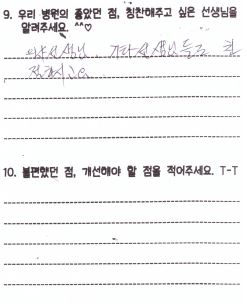 9. 우리 병원의 좋았던 점, 칭찬해주고 싶은 선생님을
알려주세요. ^^♡
선생님 기타선생님들도 친
절하시고요
10. 불편했던 점, 개선해야 할 점을 적어주세요. T-T